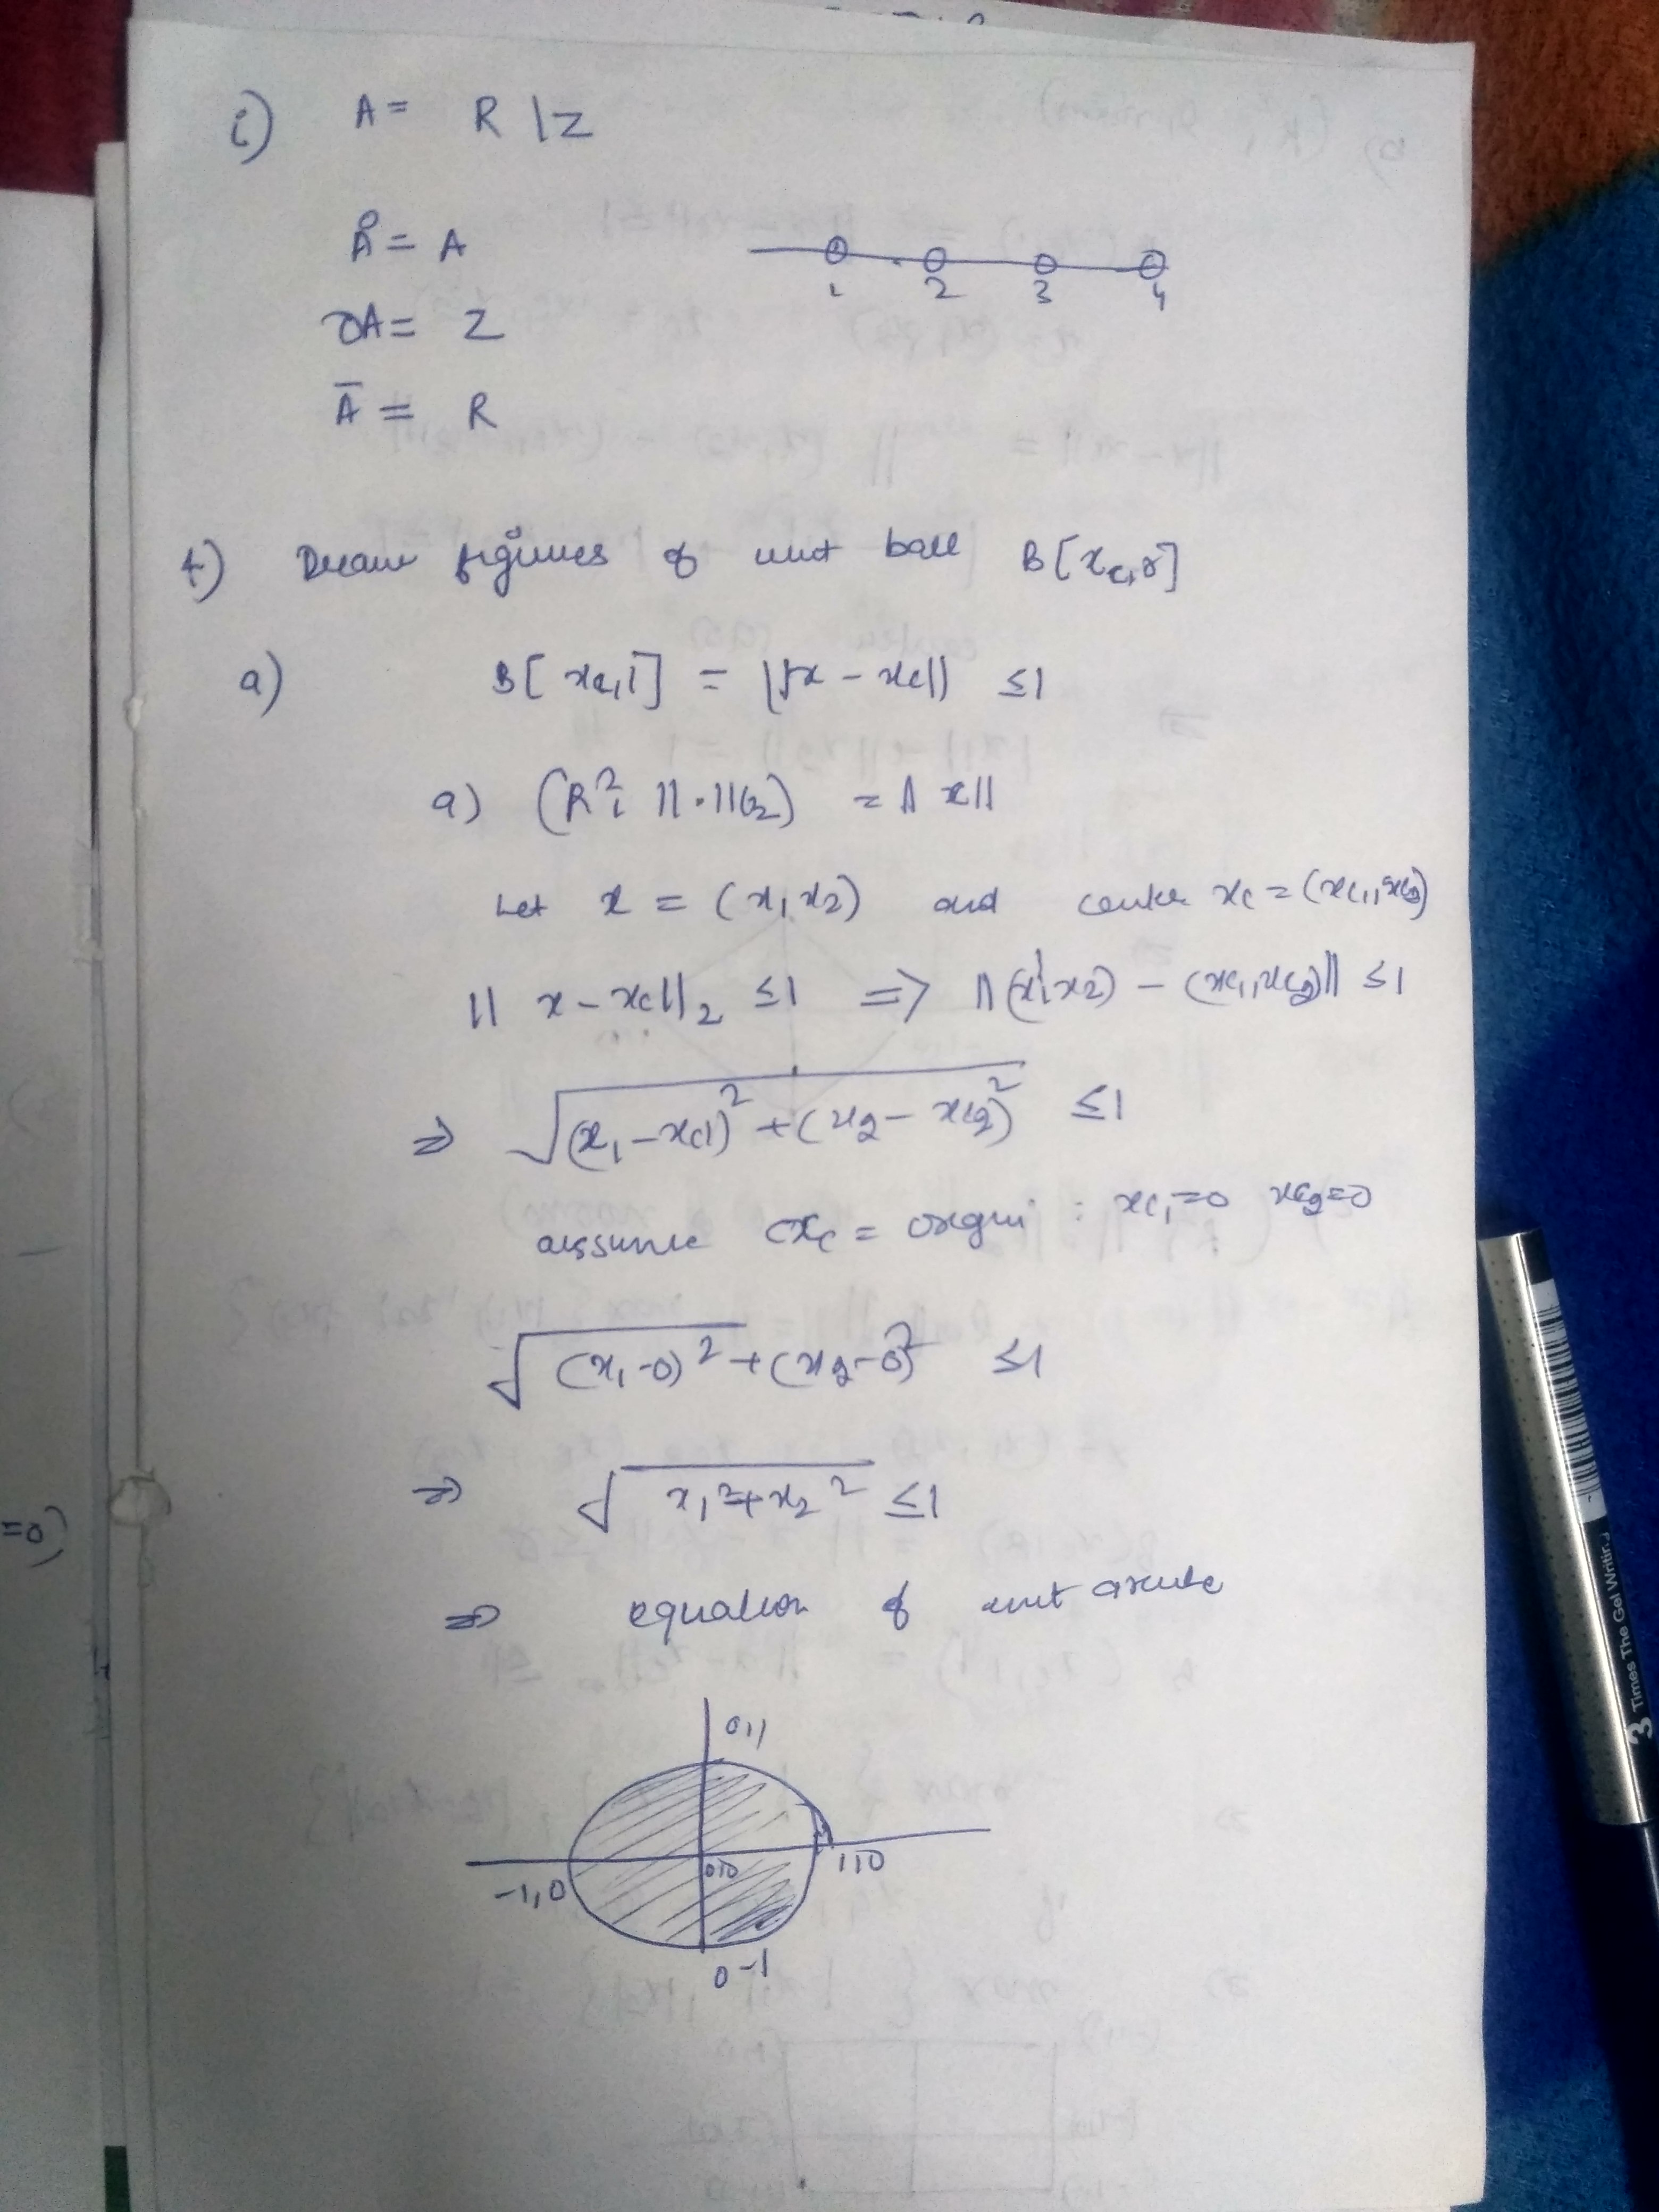 i) A = R \ Z
Å = A
1 2 3 4
∂A = Z
Ā = R
4) Draw figures of unit ball B[x_c, r]
a) B[x_c, 1] = ||x - x_c|| ≤1
a) (R², ||·||_2) = ||x||
Let x = (x_1 x_2) and center x_c = (x_c1, x_c2)
|| x - x_c||_2 ≤1 => ||(x_1 x_2) - (x_c1, x_c2)|| ≤1
=> √(x_1 - x_c1)² + (x_2 - x_c2)² ≤1
assume x_c = origin : x_c1 = 0 x_c2 = 0
√(x_1 - 0)² + (x_2 - 0)² ≤1
=> √x_1² + x_2² ≤1
=> equation of unit circle
0,1
0,0 1,0
-1,0
0 -1
=0)
3 Times The Gel Writing